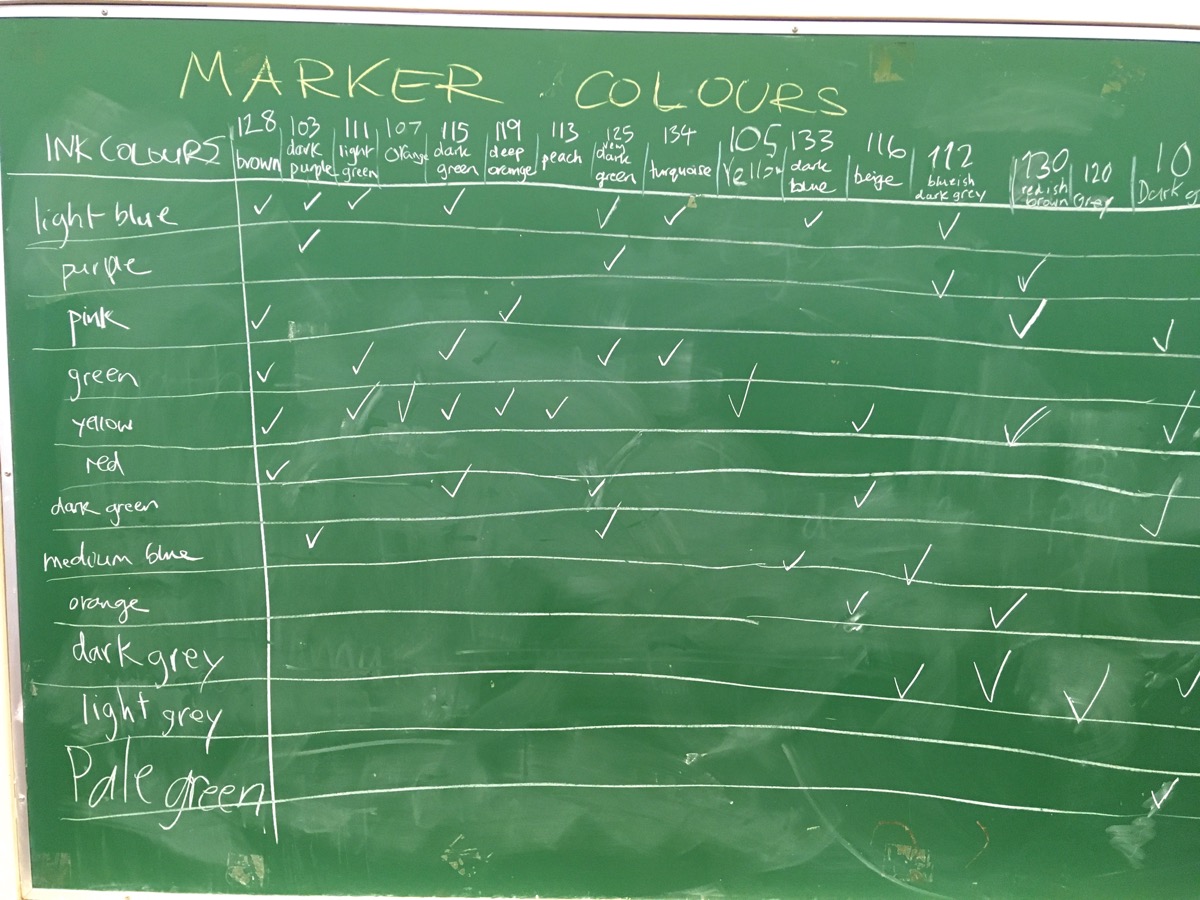 MARKER COLOURS
INK COLOURS 128 brown 103 dark purple 111 light green 107 orange 115 dark green 119 deep orange 113 peach 125 very dark green 134 turquoise 105 Yellow 133 dark blue 116 beige 112 blueish dark grey 130 redish brown 120 Gray 10 Dark g
light blue ✓ ✓ ✓ ✓ ✓ ✓ ✓ ✓
purple ✓ ✓ ✓ ✓
pink ✓ ✓ ✓ ✓
green ✓ ✓ ✓ ✓ ✓
yellow ✓ ✓ ✓ ✓ ✓ ✓ ✓ ✓ ✓ ✓
red ✓
dark green ✓ ✓ ✓ ✓
medium blue ✓ ✓ ✓ ✓
orange ✓ ✓
dark grey ✓ ✓ ✓ ✓
light grey
Pale green ✓